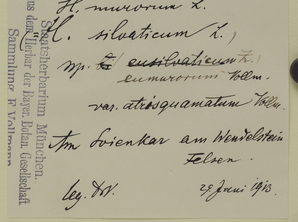 H. murorum L.
H. silvaticum L.,
ssp. eusilvaticum Z.,
eumurorum Vollm.
var. atrisquamatum Vollm.
Am Soienkar am Wendelstein
Felsen.
leg. 29 Juni 1913
Staatsherbarium München.
aus dem Herbar der Bayer. Botan. Gesellschaft
Sammlung F. Vollmann